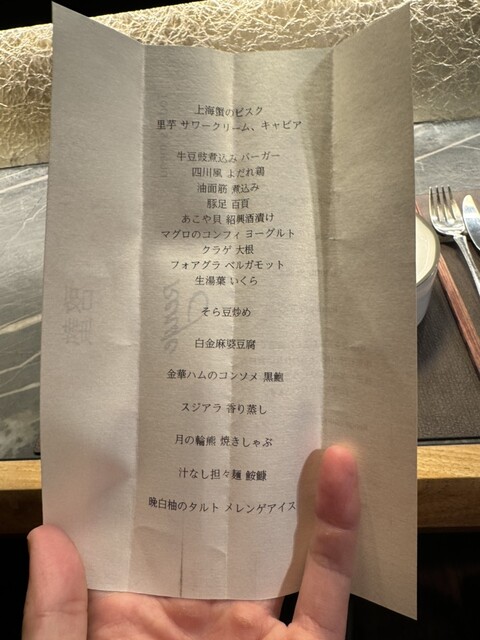 上海蟹のビスク
里芋 サワークリーム、キャビア
牛豆豉煮込み バーガー
四川風 よだれ鶏
油面筋 煮込み
豚足 百頁
あこや貝 紹興酒漬け
マグロのコンフィ ヨーグルト
クラゲ 大根
フォアグラ ベルガモット
生湯葉 いくら
そら豆炒め
白金麻婆豆腐
金華ハムのコンソメ 黒鮑
スジアラ 香り蒸し
月の輪熊 焼きしゃぶ
汁なし担々麺 鮟鱇
晩白柚のタルト メレンゲアイス